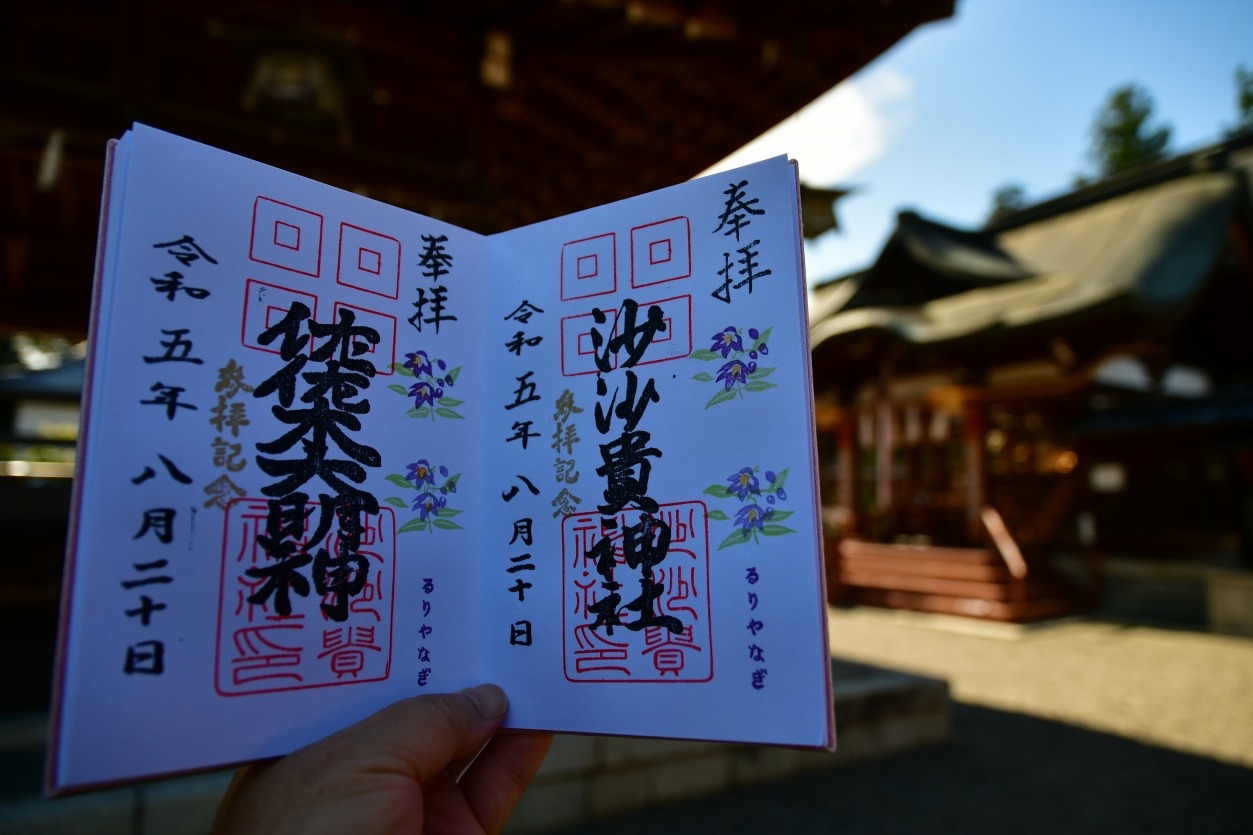 奉拝
沙沙貴神社
参拝記念
令和五年八月二十日
るりやなぎ
奉拝
佐佐木大明神
参拝記念
令和五年八月二十日
るりやなぎ